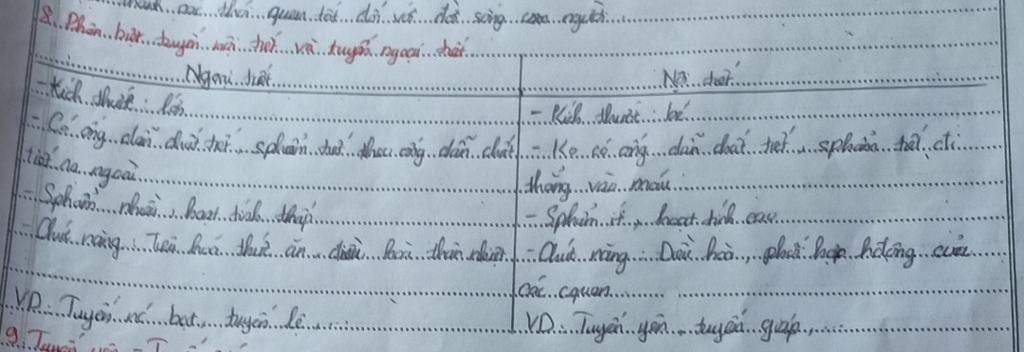 thành các thói quen tốt đối với đời sống con người.
8. Phân biệt tuyến nội tiết và tuyến ngoại tiết
Ngoại tiết
- Kích thước: lớn
- Có ống dẫn chất tiết, sphẩm tiết theo ống dẫn chất
tiết ra ngoài
- Sphẩm nhiều, hoạt tính thấp
- Chức năng: Tiêu hoá thức ăn, điều hoà thân nhiệt
VD: Tuyến nc bọt, tuyến lệ
Nội tiết
- Kích thước: bé
- Ko có ống dẫn chất tiết, sphẩm tiết đi
thẳng vào máu
- Sphẩm ít, hoạt tính cao
- Chức năng: Điều hoà, phối hợp hđộng của
các cquan
VD: Tuyến yên, tuyến giáp,
9. Tuyến yên